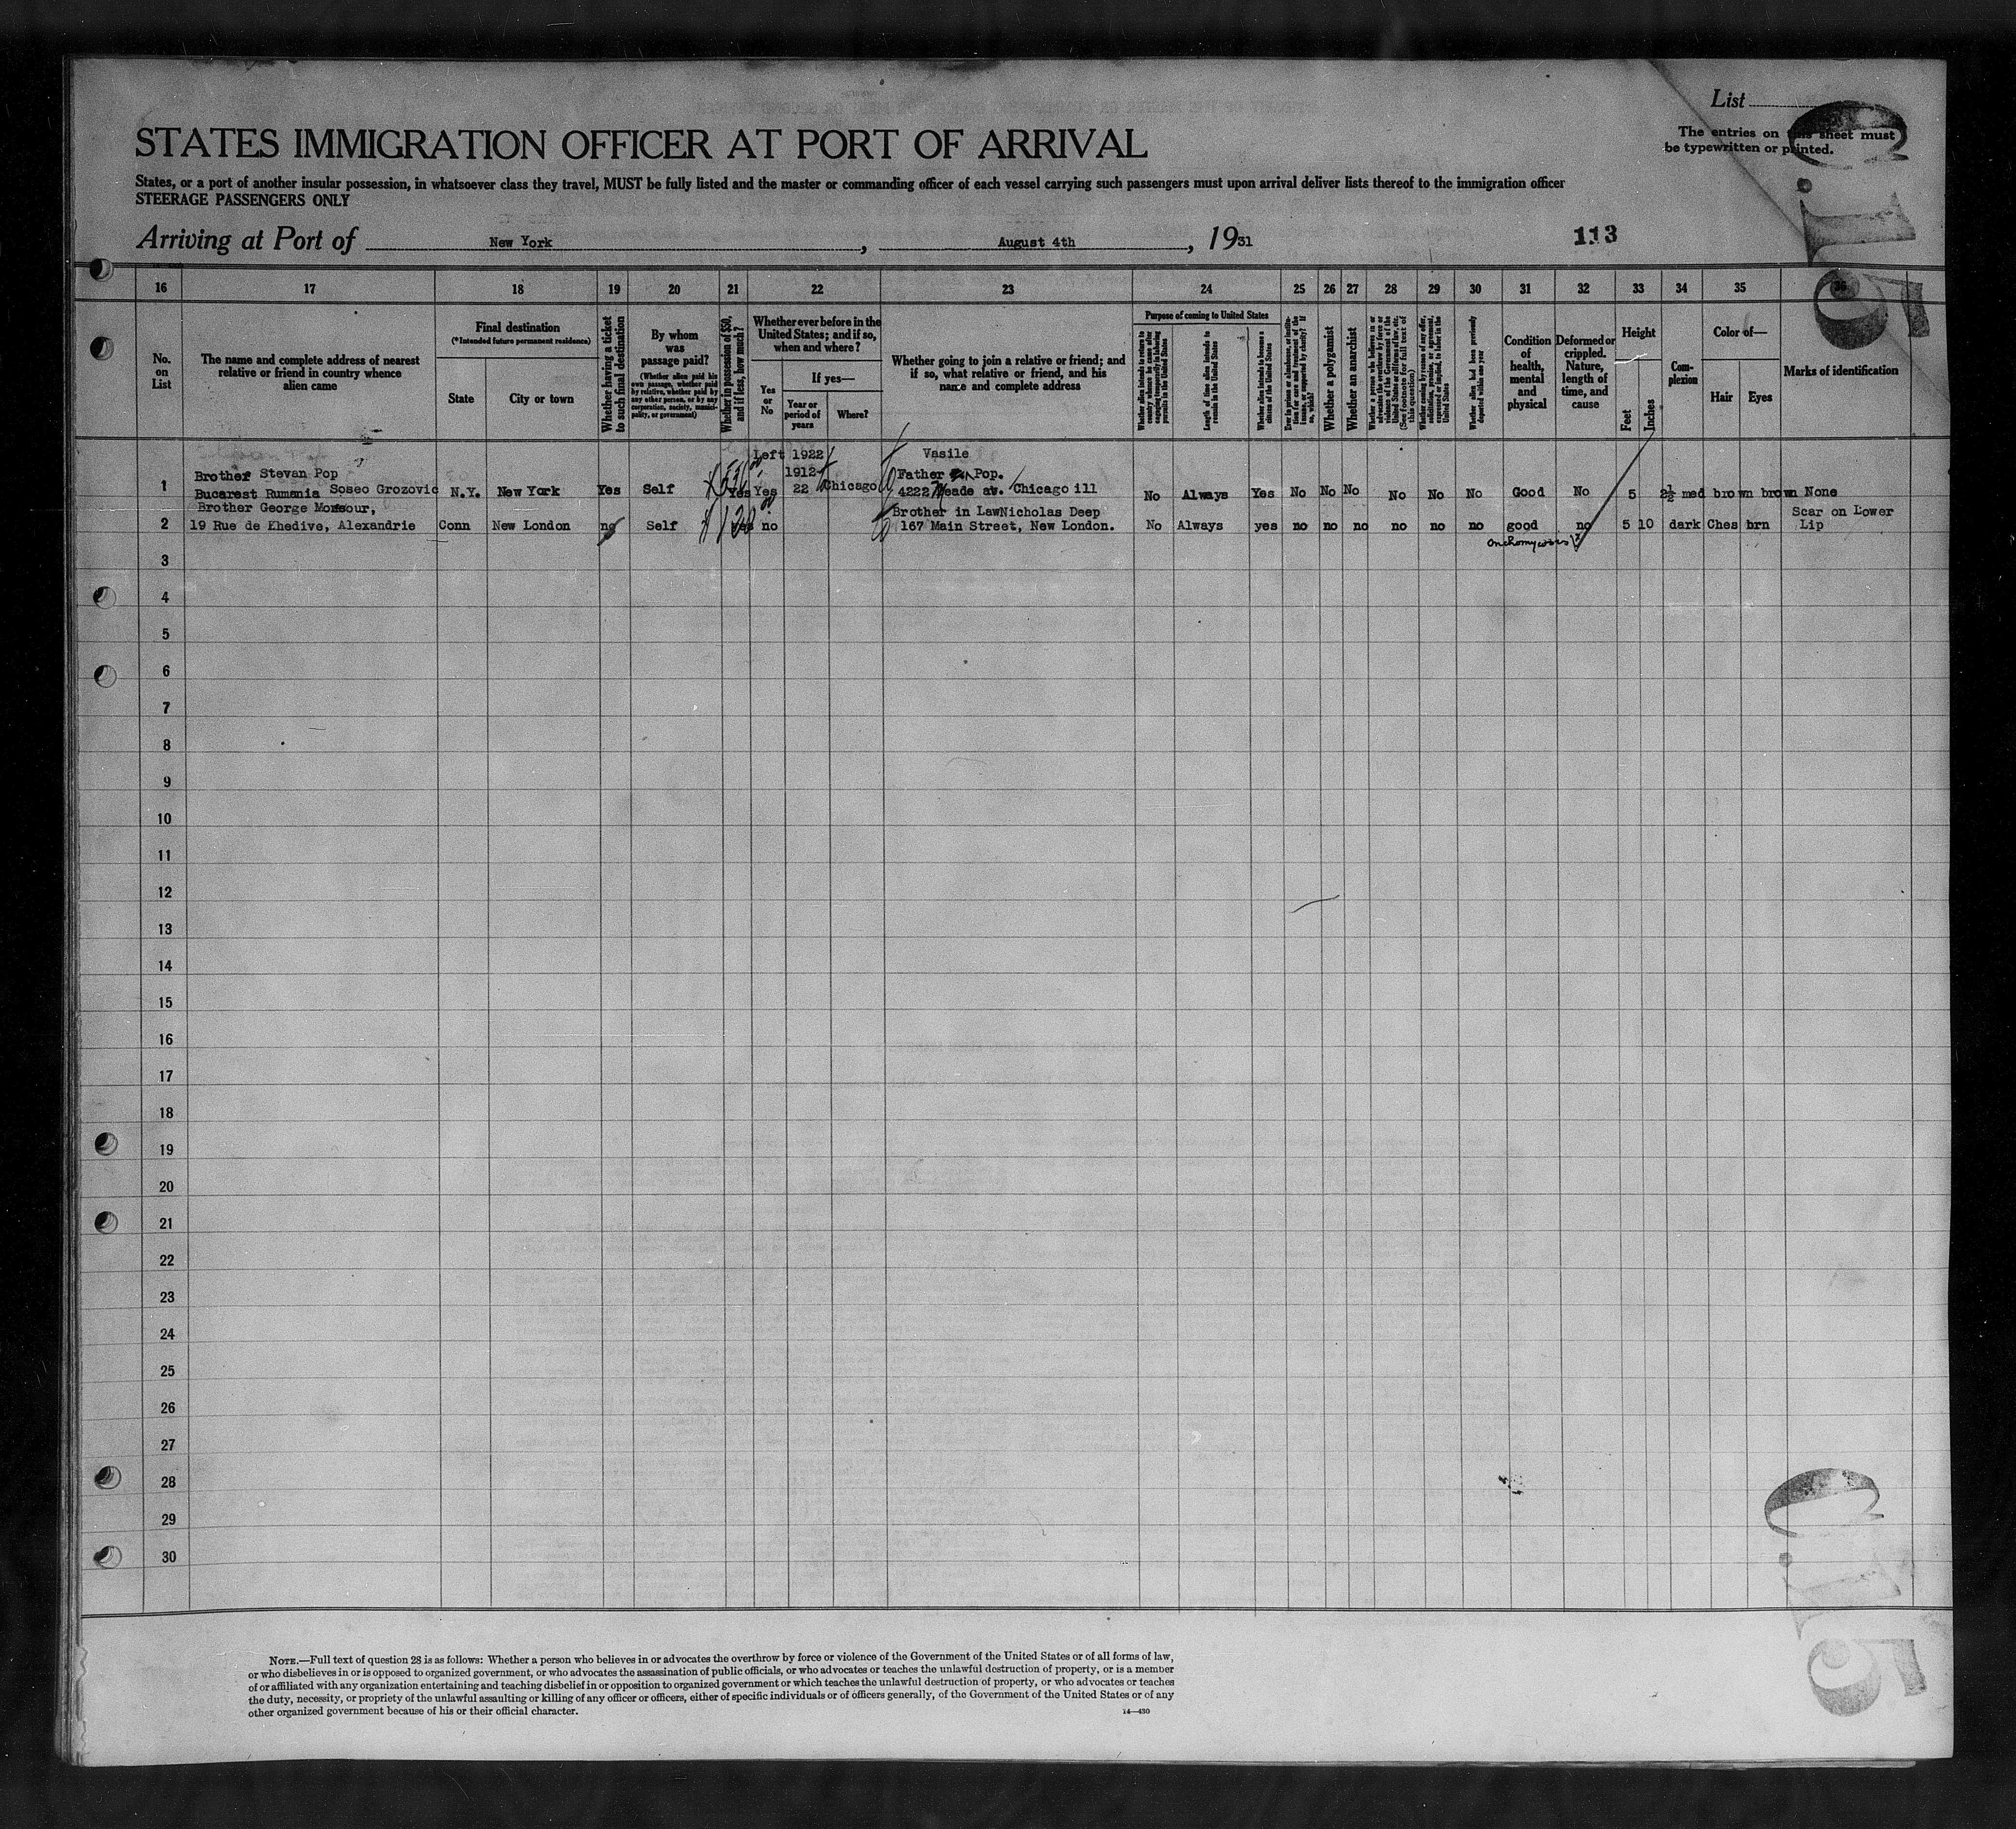 List
The entries on this sheet must
be typewritten or printed.
STATES IMMIGRATION OFFICER AT PORT OF ARRIVAL
States, or a port of another insular possession, in whatsoever class they travel, MUST be fully listed and the master or commanding officer of each vessel carrying such passengers must upon arrival deliver lists thereof to the immigration officer
STEERAGE PASSENGERS ONLY
Arriving at Port of New York, August 4th, 1931
113
16 17 18 19 20 21 22 23 24 25 26 27 28 29 30 31 32 33 34 35 36
No. on List
The name and complete address of nearest
relative or friend in country whence
alien came
Final destination
(*Intended future permanent residence)
State
City or town
Whether having a ticket
to such final destination
By whom
was
passage paid?
(Whether alien paid his
own passage, whether paid
by relative, whether paid by
any other person, or by any
corporation, society, munici-
pality, or government)
Whether in possession of $50,
and if less, how much?
Whether ever before in the
United States; and if so,
when and where?
Yes
or
No
If yes—
Year or
period of
years
Where?
Whether going to join a relative or friend; and
if so, what relative or friend, and his
name and complete address
Purpose of coming to United States
Whether alien intends to return to
country whence he came after
engaging temporarily in laboring
pursuits in the United States
Length of time alien intends to
remain in the United States
Whether alien intends to become a
citizen of the United States
Ever in prison or almshouse, or institu-
tion for care and treatment of the
insane, or supported by charity? If
so, which?
Whether a polygamist
Whether an anarchist
Whether a person who believes in or
advocates the overthrow by force or
violence of the Government of the
United States or all forms of law, etc.
(See footnote for full text of
this question)
Whether coming by reason of any offer,
solicitation, promise, or agreement,
expressed or implied, to labor in the
United States
Whether alien had been previously
deported within one year
Condition
of
health,
mental
and
physical
Deformed or
crippled.
Nature,
length of
time, and
cause
Height
Feet
Inches
Com-
plexion
Color of—
Hair
Eyes
Marks of identification
Left 1922 Vasile
Brother Stevan Pop 1912- Father Pop.
1 Bucarest Rumania Soseo Grozovic N.Y. New York Yes Self Yes Yes 22 Chicago 4222 Meade av. Chicago ill No Always Yes No No No No No No Good No 5 2½ med brown brown None
Brother George Monsour, Brother in Law Nicholas Deep Scar on Lower
2 19 Rue de Khedive, Alexandrie Conn New London no Self yes no 167 Main Street, New London. No Always yes no no no no no no good no 5 10 dark Ches brn Lip
3
4
5
6
7
8
9
10
11
12
13
14
15
16
17
18
19
20
21
22
23
24
25
26
27
28
29
30
NOTE.—Full text of question 28 is as follows: Whether a person who believes in or advocates the overthrow by force or violence of the Government of the United States or of all forms of law,
or who disbelieves in or is opposed to organized government, or who advocates the assassination of public officials, or who advocates or teaches the unlawful destruction of property, or is a member
of or affiliated with any organization entertaining and teaching disbelief in or opposition to organized government or which teaches the unlawful destruction of property, or who advocates or teaches
the duty, necessity, or propriety of the unlawful assaulting or killing of any officer or officers, either of specific individuals or of officers generally, of the Government of the United States or of any
other organized government because of his or their official character.
14—430